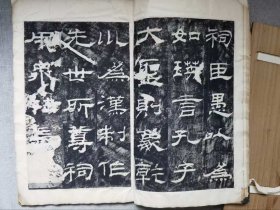 祠臣愚以爲
如瑛言孔子
大聖則象乾
川爲漢制作
先世所尊祠
用衆